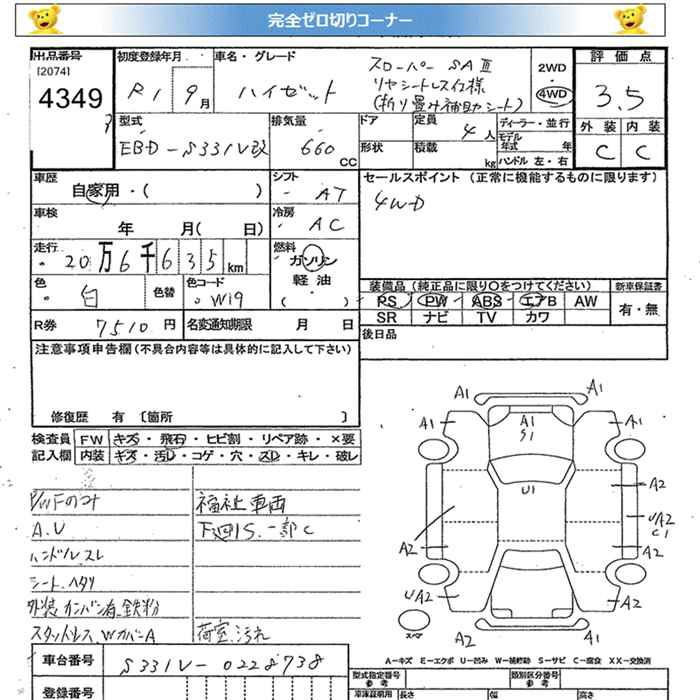 完全ゼロ切りコーナー
出品番号 初度登録年月 車名・グレード スローパー SAⅢ 2WD 評価点
[2074]
4349 R1 9月 ハイゼット リヤシートレス仕様 4WD 3.5
(折り畳み補助シート)
型式 排気量 ドア 定員 4人 ディーラー・並行 外装 内装
EBD-S331V改 660 CC 形状 積載 kg モデル年式 年 C C
ハンドル 左・右
車歴 シフト セールスポイント (正常に機能するものに限ります)
自家用・( ) AT 4WD
車検 冷房
年 月( 日) AC
走行 燃料
20万6千635km ガソリン
軽油
色 色替 色コード ( ) 装備品 (純正品に限り○をつけてください) 新車保証書
白 W19 PS PW ABS エアB AW 有・無
SR ナビ TV カワ
R券 7510円 名変通知期限 月 日 後日品
注意事項申告欄 (不具合内容等は具体的に記入して下さい)
修復歴 有 〔箇所 〕
検査員 FW キズ・飛石・ヒビ割・リペア跡・×要
記入欄 内装 キズ・汚レ・コゲ・穴・スレ・キレ・破レ
福祉車両
A.V 下廻りS.一部C
ハンドルスレ
シートヘタリ
外装カンバン有 鉄粉
スタッドレス WカバーA 荷室汚れ
A1 A1
A1 A1 A1
S1
U1
A2
UA2
C1
A2 A2
UA2 A2
スペア
A2 A1
A-キズ E-エクボ U-凹み W-補修跡 S-サビ C-腐食 XX-交換済
車台番号 S331V-0228738
型式指定番号 参考 類別区分番号 参考
登録番号 車庫証明用 長さ 幅 高さ